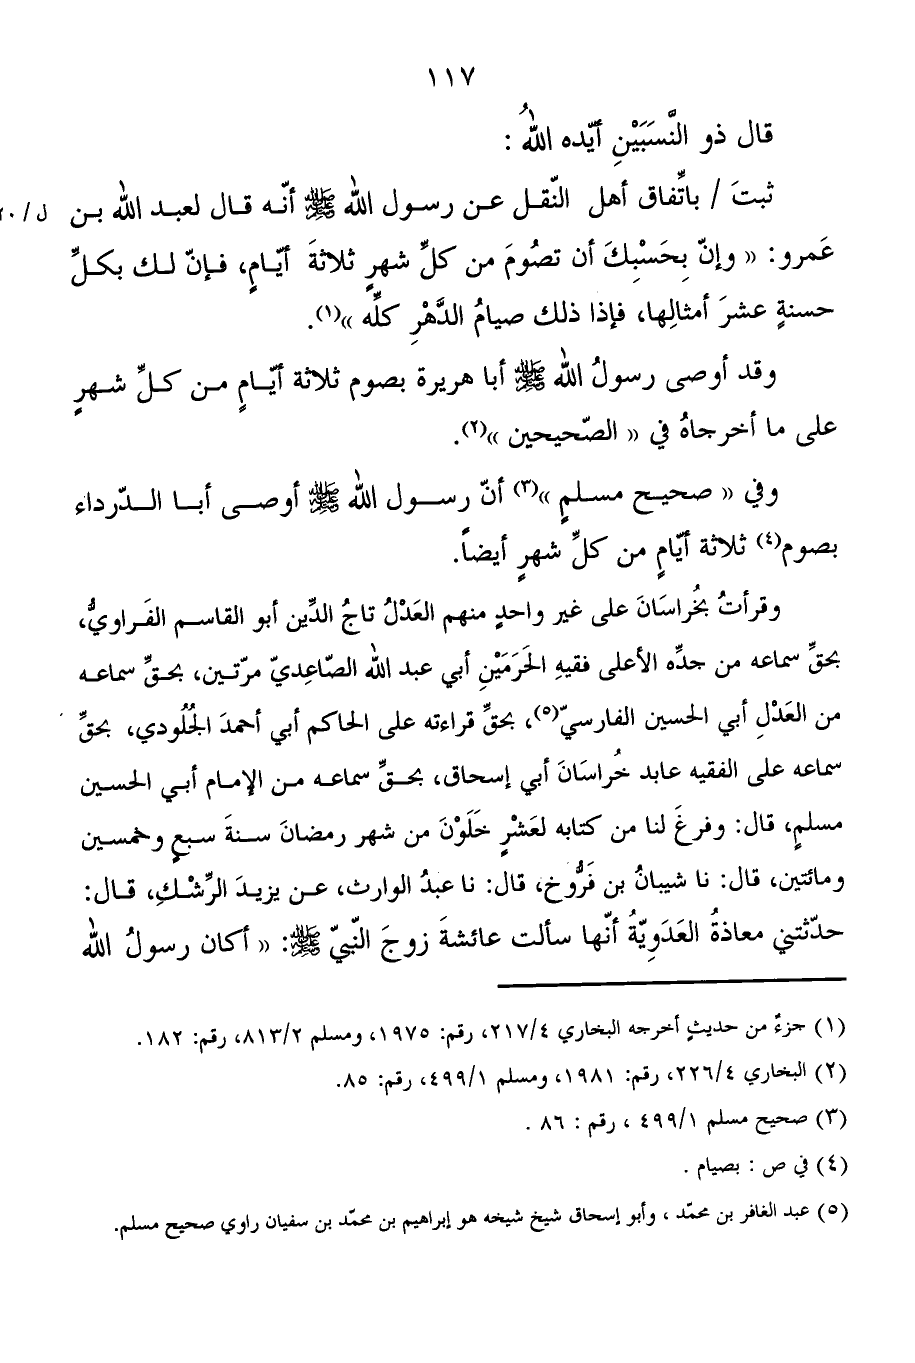 ١١٧
قال ذو النَّسَبَيْنِ أيّده اللهُ :
ثبتَ / باتِّفاق أهل النّقل عن رسول الله ﷺ أنّه قال لعبد الله بن
عَمرو: « وإنّ بِحَسْبِكَ أن تصُومَ من كلِّ شهرٍ ثلاثةَ أيّامٍ، فإنّ لك بكلِّ
حسنةٍ عشرَ أمثالِها، فإذا ذلك صيامُ الدَّهْرِ كلِّه »(١).
وقد أوصى رسولُ الله ﷺ أبا هريرة بصوم ثلاثة أيّامٍ من كلِّ شهرٍ
على ما أخرجاهُ في « الصّحيحين »(٢).
وفي « صحيح مسلمٍ »(٣) أنّ رسول الله ﷺ أوصى أبا الدّرداء
بصوم(٤) ثلاثة أيّامٍ من كلِّ شهرٍ أيضاً.
وقرأتُ بخُراسَانَ على غير واحدٍ منهم العَدْلُ تاجُ الدِّين أبو القاسم الفَراويُّ،
بحقِّ سماعه من جدِّه الأعلى فقيهِ الحَرَمَيْنِ أبي عبد الله الصّاعِديّ مرّتين، بحقِّ سماعه
من العَدْلِ أبي الحسين الفارسيّ(٥)، بحقِّ قراءته على الحاكم أبي أحمدَ الجُلُودي، بحقِّ
سماعه على الفقيه عابد خُراسَانَ أبي إسحاق، بحقِّ سماعه من الإمام أبي الحسين
مسلمٍ، قال: وفرغَ لنا من كتابه لعَشْرٍ خَلَوْنَ من شهر رمضانَ سنةَ سبعٍ وخمسين
ومائتين، قال: نا شيبانُ بن فَرُّوخ، قال: نا عبدُ الوارث، عن يزيدَ الرِّشْكِ، قال:
حدّثتني معاذةُ العَدَوِيّةُ أنّها سألت عائشةَ زوجَ النّبيّ ﷺ: « أكان رسولُ الله
(١) جزءٌ من حديثٍ أخرجه البخاري ٢١٧/٤، رقم: ١٩٧٥، ومسلم ٨١٣/٢، رقم: ١٨٢.
(٢) البخاري ٢٢٦/٤، رقم: ١٩٨١، ومسلم ٤٩٩/١، رقم: ٨٥.
(٣) صحيح مسلم ٤٩٩/١ ، رقم : ٨٦ .
(٤) في ص : بصيام .
(٥) عبد الغافر بن محمّد ، وأبو إسحاق شيخ شيخه هو إبراهيم بن محمّد بن سفيان راوي صحيح مسلم.